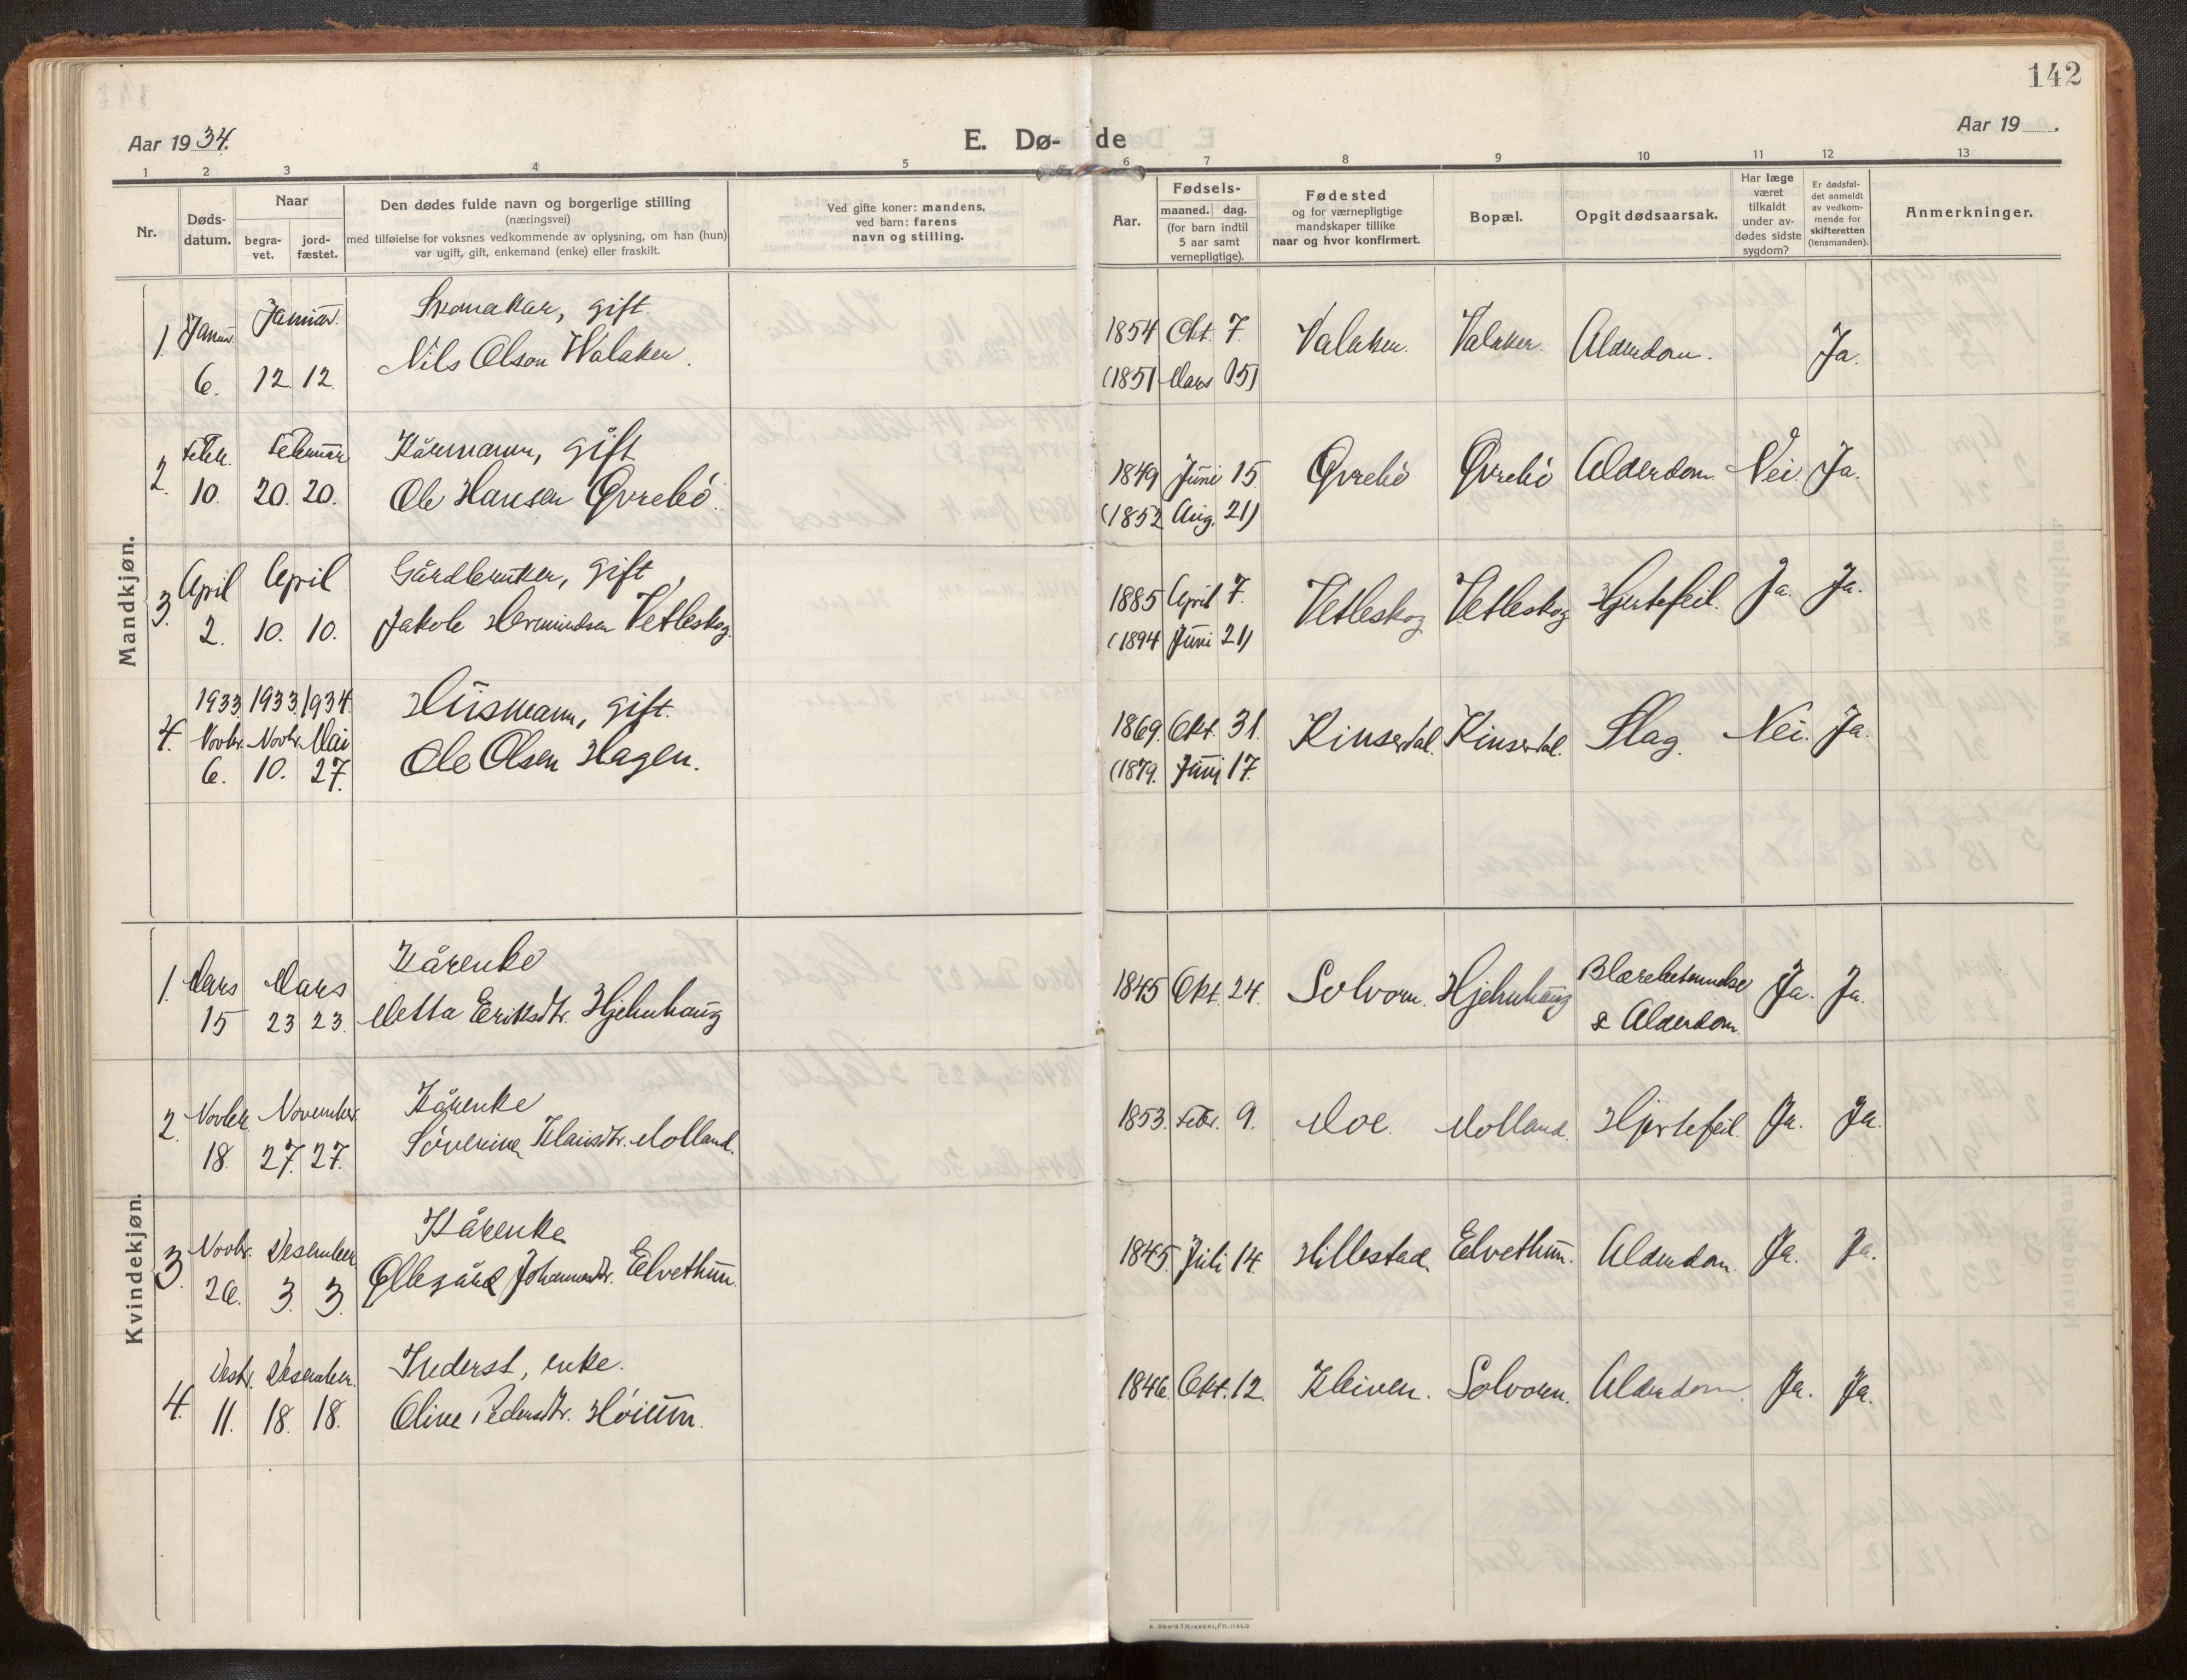 142
Aar 1934.
E. Dø- de
Aar 19 .
1 2 3 4 5 6 7 8 9 10 11 12 13
Nr.
Døds-
datum.
Naar
begra-
vet.
jord-
fæstet.
Den dødes fulde navn og borgerlige stilling
(næringsvei)
med tilføielse for voksnes vedkommende av oplysning, om han (hun)
var ugift, gift, enkemand (enke) eller fraskilt.
Ved gifte koner: mandens,
ved barn: farens
navn og stilling.
Aar.
Fødsels-
maaned. dag.
(for barn indtil
5 aar samt
vernepligtige).
Fødested
og for værnepligtige
mandskaper tillike
naar og hvor konfirmert.
Bopæl.
Opgit dødsaarsak.
Har læge
været
tilkaldt
under av-
dødes sidste
sygdom?
Er dødsfal-
det anmeldt
av vedkom-
mende for
skifteretten
(lensmanden).
Anmerkninger.
Mandkjøn.
1. Januar. Januar. Skomakar, gift.
6. 12. 12. Nils Olson Walaker.
1854 Okt. 7. Valaker. Valaker. Alderdom. Ja.
(1851 Mars 15)
2. Febr. Februar Kårmann, gift
10. 20. 20. Ole Hansen Øvrebö.
1849 Juni 15. Øvrebö Øvrebö Alderdom. Nei. Ja.
(1852 Aug. 21)
3. April April Gårdbruker, gift,
2. 10. 10. Jakob Hermundsen Vetleskog.
1885 April 7. Vetleskog Vetleskog Hjertefeil. Ja. Ja.
(1894 Juni 21)
4. 1933 1933 1934. Husmann, gift.
Novbr. Novbr. Mai Ole Olsen Hagen.
6. 10. 27.
1869. Okt. 31. Kinserdal. Kinserdal. Slag. Nei. Ja.
(1879. Juni 17.
Kvindekjøn.
1. Mars Mars Kårenke
15 23 23. Metta Eriksdtr. Hjelmhaug
1845 Okt. 24. Solvorn. Hjelmhaug Blærebetendelse Ja. Ja.
& Alderdom.
2. Novbr. November Kårenke
18. 27. 27. Söverine Klausdtr. Molland.
1853. Febr. 9. Moe. Molland. Hjertefeil. Ja. Ja.
3. Novbr. Desember Kårenke
26. 3. 3. Øllegård Johannesdtr. Elvethun.
1845. Juli 14. Hillestad Elvethun. Alderdom. Ja. Ja.
4. Desbr. Desember. Inderst, enke.
11. 18. 18. Oline Pedersdtr. Höium.
1846. Okt. 12. Kleiven. Solvorn. Alderdom. Ja. Ja.